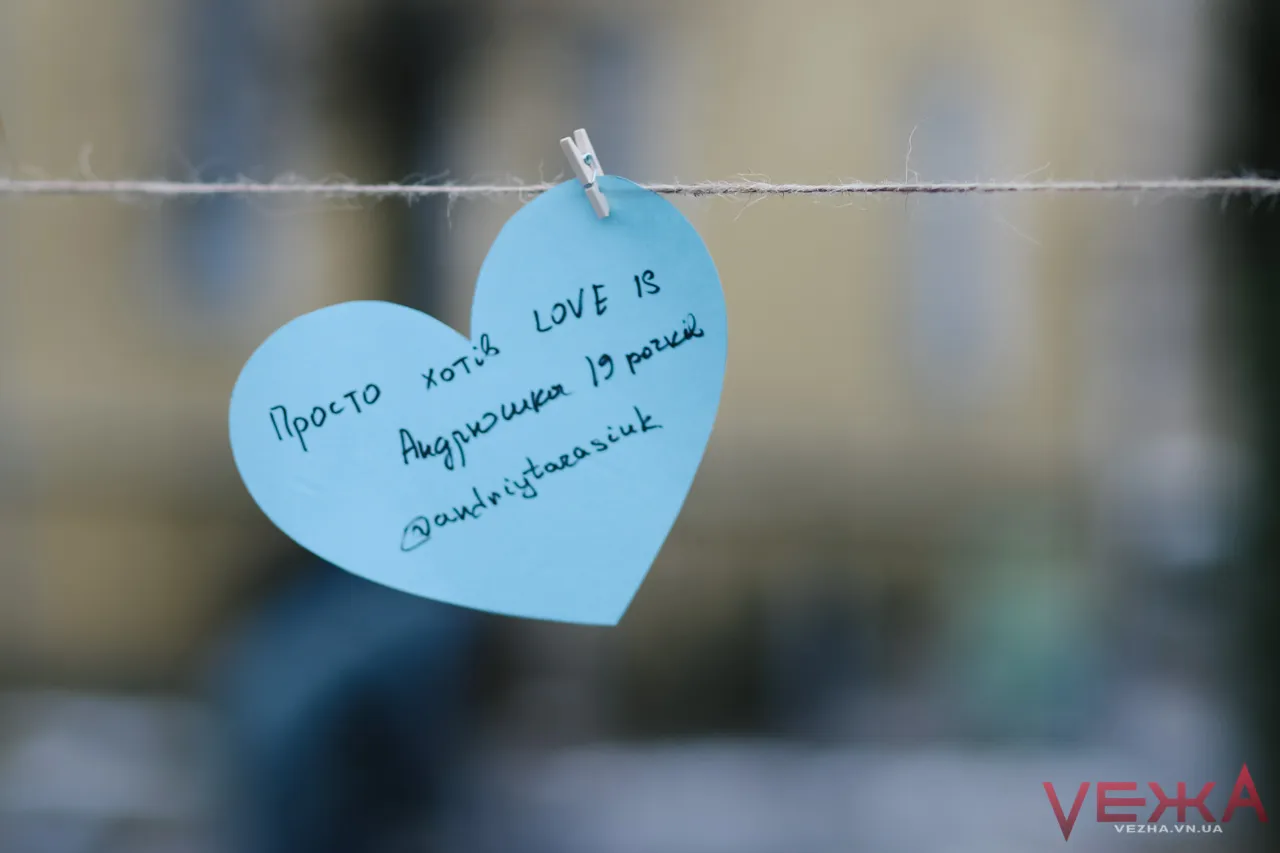 Просто хотів LOVE IS
Андрюшка 19 рочків
@andriytarasiuk
VEЖА
VEZHA.VN.UA